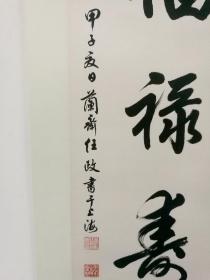 福禄寿
甲子夏日蘭齋任政書于上海